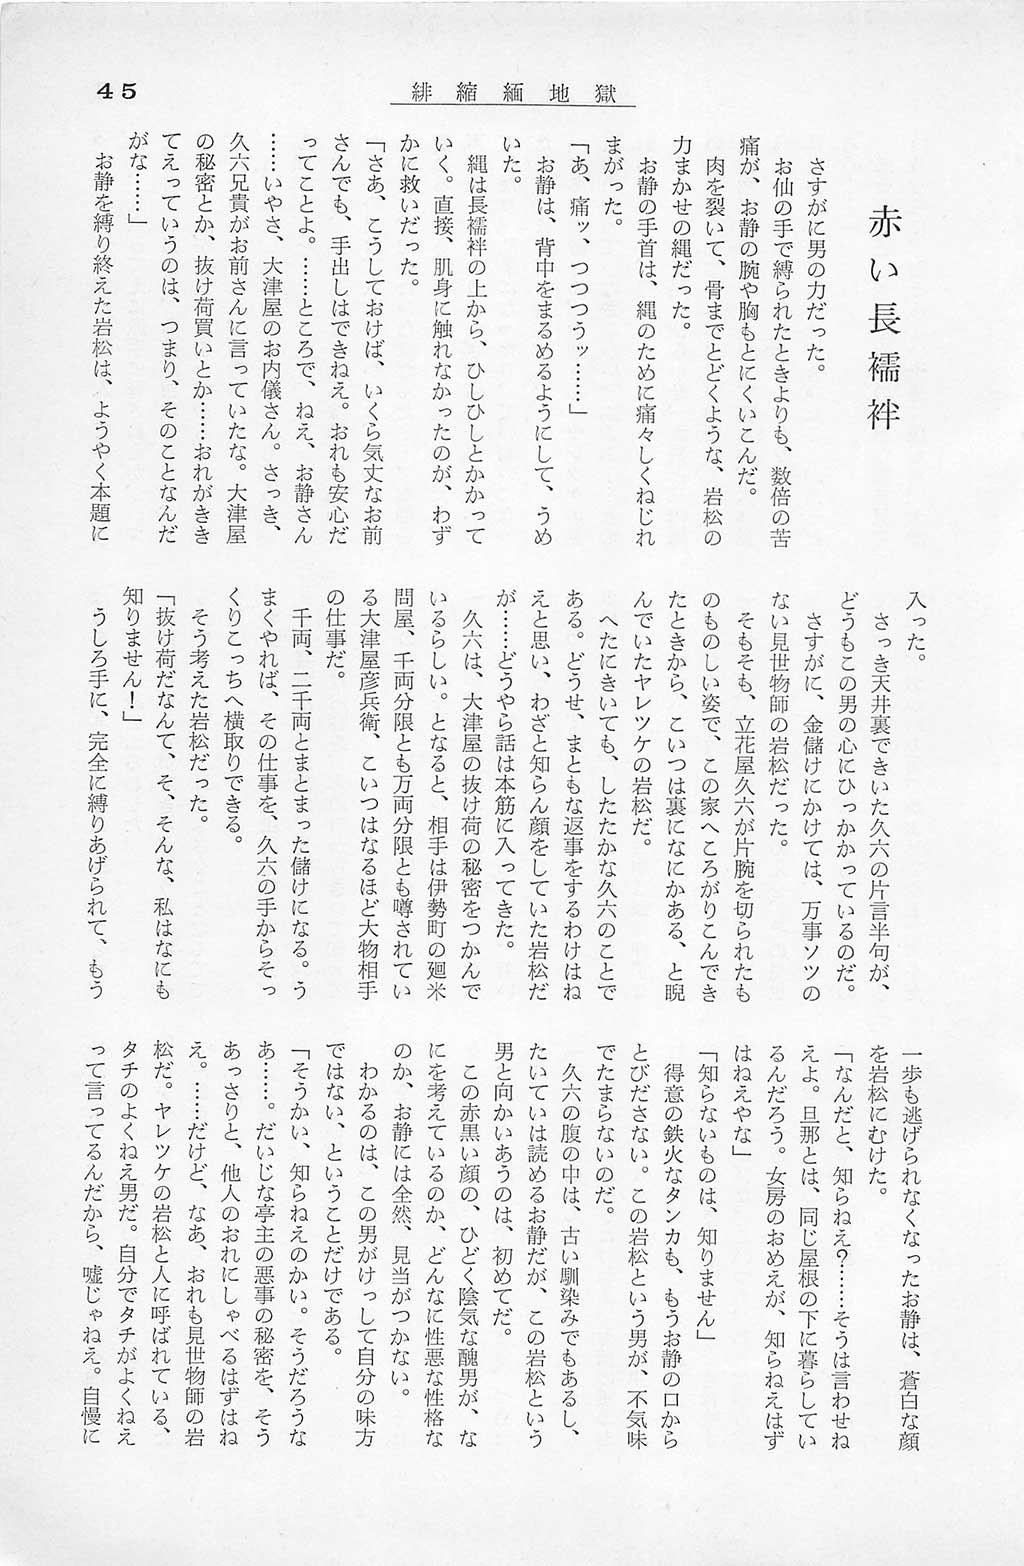 45
緋縮緬地獄
赤い長襦袢
さすがに男の力だった。
お仙の手で縛られたときよりも、数倍の苦
痛が、お静の腕や胸もとにくいこんだ。
肉を裂いて、骨までとどくような、岩松の
力まかせの縄だった。
お静の手首は、縄のために痛々しくねじれ
まがった。
「あ、痛ッ、つつつうッ……」
お静は、背中をまるめるようにして、うめ
いた。
縄は長襦袢の上から、ひしひしとかかって
いく。直接、肌身に触れなかったのが、わず
かに救いだった。
「さあ、こうしておけば、いくら気丈なお前
さんでも、手出しはできねえ。おれも安心だ
ってことよ。……ところで、ねえ、お静さん
……いやさ、大津屋のお内儀さん。さっき、
久六兄貴がお前さんに言っていたな。大津屋
の秘密とか、抜け荷買いとか……おれがきき
てえっていうのは、つまり、そのことなんだ
がな……」
お静を縛り終えた岩松は、ようやく本題に
入った。
さっき天井裏できいた久六の片言半句が、
どうもこの男の心にひっかかっているのだ。
さすがに、金儲けにかけては、万事ソツの
ない見世物師の岩松だった。
そもそも、立花屋久六が片腕を切られたも
のものしい姿で、この家へころがりこんでき
たときから、こいつは裏になにかある、と睨
んでいたヤレツケの岩松だ。
へたにきいても、したたかな久六のことで
ある。どうせ、まともな返事をするわけはね
えと思い、わざと知らん顔をしていた岩松だ
が……どうやら話は本筋に入ってきた。
久六は、大津屋の抜け荷の秘密をつかんで
いるらしい。となると、相手は伊勢町の廻米
問屋、千両分限とも万両分限とも噂されてい
る大津屋彦兵衛、こいつはなるほど大物相手
の仕事だ。
千両、二千両とまとまった儲けになる。う
まくやれば、その仕事を、久六の手からそっ
くりこっちへ横取りできる。
そう考えた岩松だった。
「抜け荷だなんて、そ、そんな、私はなにも
知りません！」
うしろ手に、完全に縛りあげられて、もう
一歩も逃げられなくなったお静は、蒼白な顔
を岩松にむけた。
「なんだと、知らねえ？……そうは言わせね
えよ。旦那とは、同じ屋根の下に暮らしてい
るんだろう。女房のおめえが、知らねえはず
はねえやな」
「知らないものは、知りません」
得意の鉄火なタンカも、もうお静の口から
とびださない。この岩松という男が、不気味
でたまらないのだ。
久六の腹の中は、古い馴染みでもあるし、
たいていは読めるお静だが、この岩松という
男と向かいあうのは、初めてだ。
この赤黒い顔の、ひどく陰気な醜男が、な
にを考えているのか、どんなに性悪な性格な
のか、お静には全然、見当がつかない。
わかるのは、この男がけっして自分の味方
ではない、ということだけである。
「そうかい、知らねえのかい。そうだろうな
あ……。だいじな亭主の悪事の秘密を、そう
あっさりと、他人のおれにしゃべるはずはね
え。……だけど、なあ、おれも見世物師の岩
松だ。ヤレツケの岩松と人に呼ばれている、
タチのよくねえ男だ。自分でタチがよくねえ
って言ってるんだから、嘘じゃねえ。自慢に